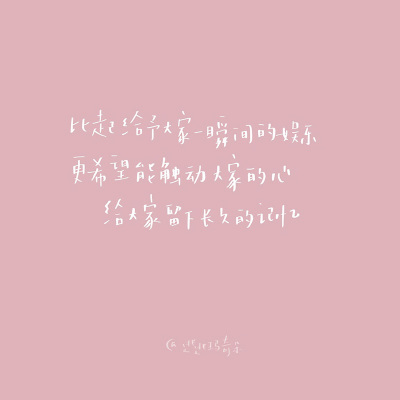 比起给予大家一瞬间的娱乐
更希望能触动大家的心
给大家留下长久的记忆